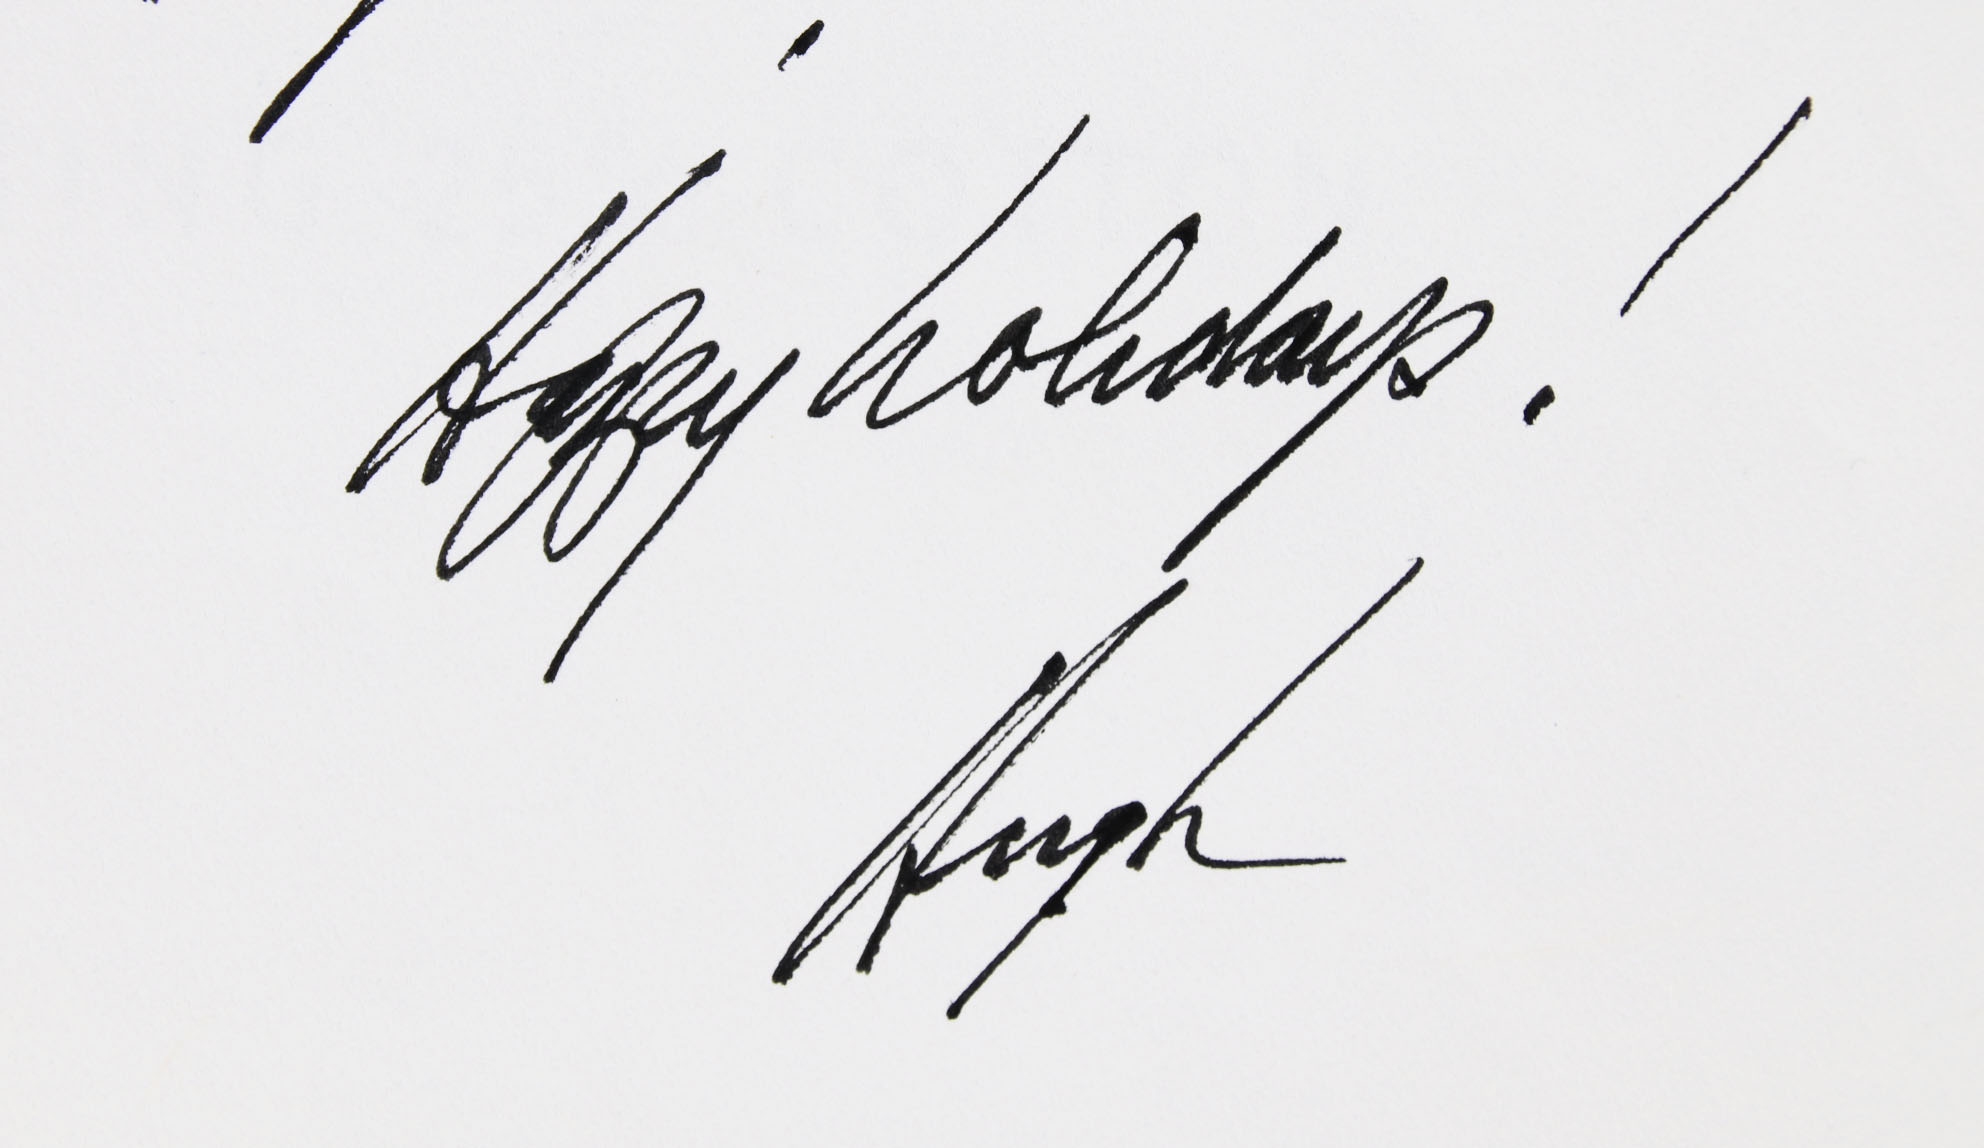 Happy holidays!
Hugh